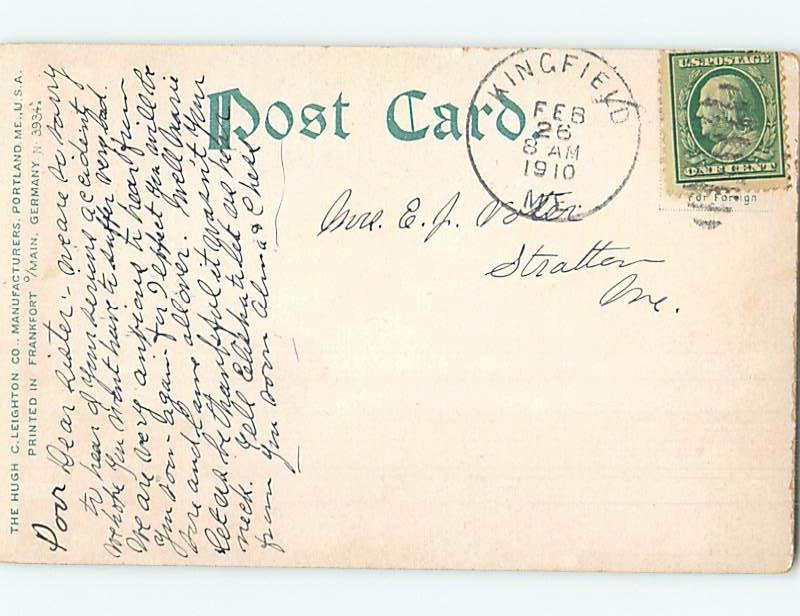 THE HUGH C. LEIGHTON CO., MANUFACTURERS, PORTLAND, ME., U.S.A.
PRINTED IN FRANKFORT O/MAIN, GERMANY No 3934
Post Card.
KINGFIELD
FEB
26
8 AM
1910
ME.
U.S. POSTAGE
ONE CENT
For Foreign
Mrs. E. J.
Stratton
Me.
Poor Dear Sister:- We are so sorry
to hear of your serious accident
We hope you wont have to suffer very bad.
We are very anxious to hear from
you soon again for I expect you will be
sore and lame all over. Well
Let us be thankful it wasn't your
neck. Tell to let us hear
from you soon Alma & Chest